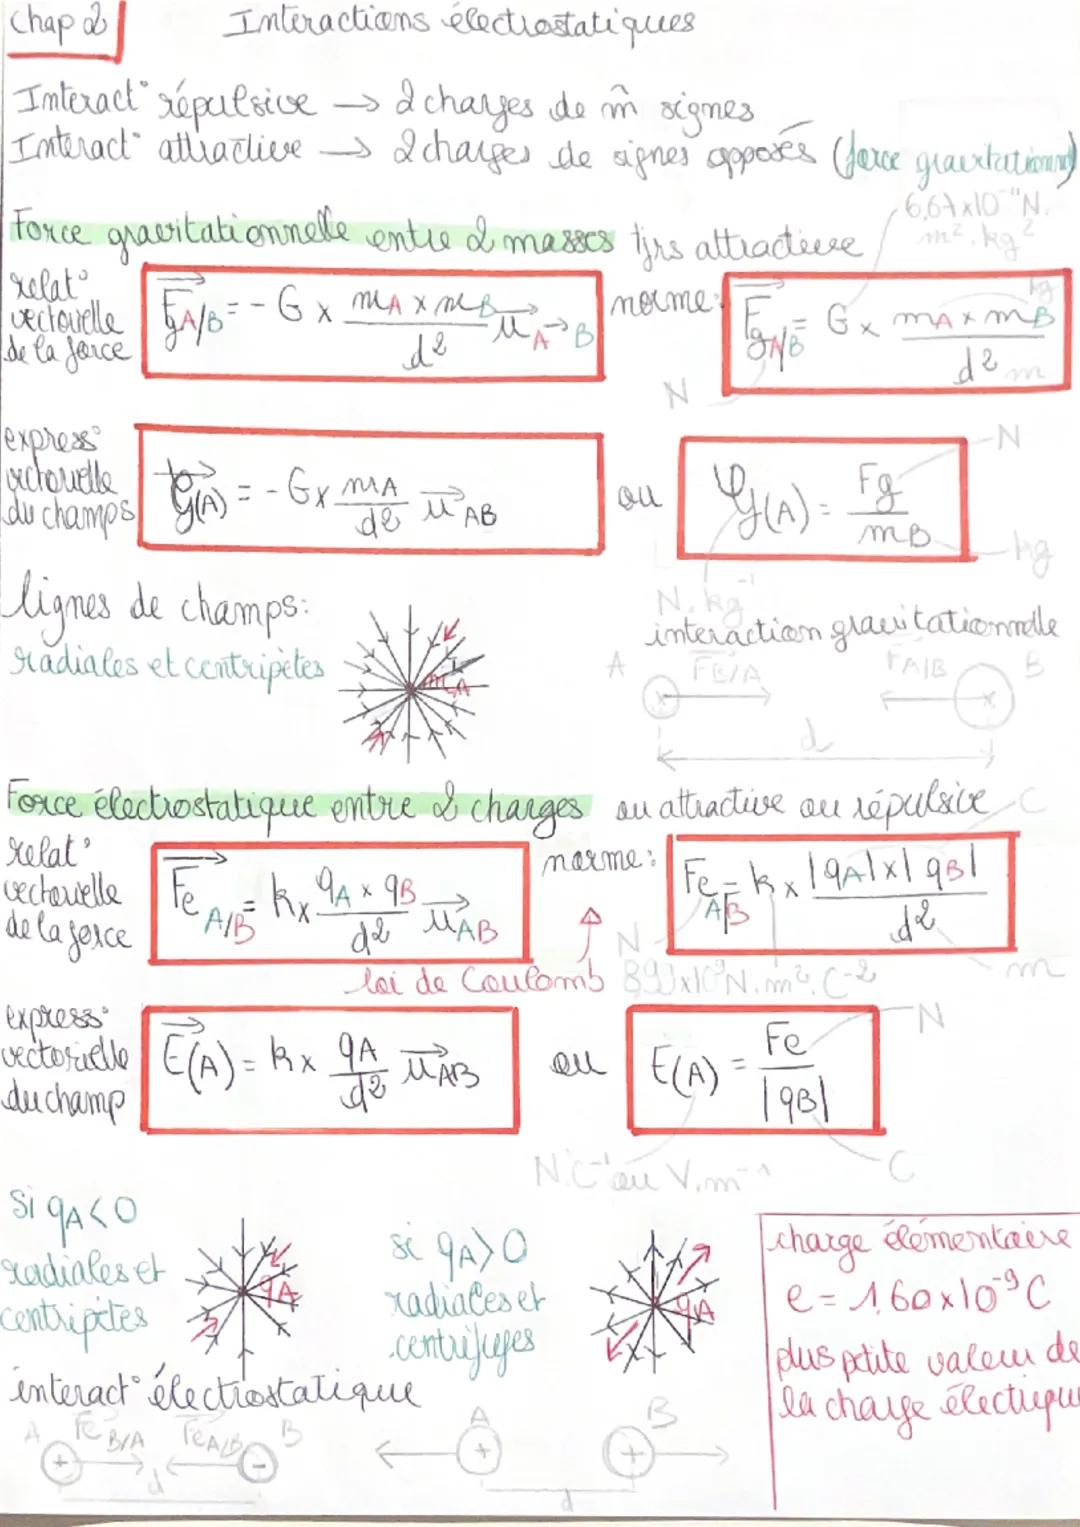 Chap 2 Interactions électrostatiques
Interact° répulsive → 2 charges de m̂ signes
Interact° attractive → 2 charges de signes opposés (force gravitationnel)
Force gravitationnelle entre 2 masses tjrs attractive
6,67x10⁻¹¹ N.
m².kg²
relat°
vectorielle
de la force
F⃗gA/B = - G x mA x mB / d² u⃗A→B
norme:
F⃗gA/B = G x mA x mB / d²
kg
m
N
express°
vectorielle
du champs
g⃗(A) = - G x mA / d² u⃗AB
ou
g(A) = Fg / mB
N
kg
N.kg⁻¹
lignes de champs:
radiales et centripètes
mA
interaction gravitationnelle
A FB/A FA/B B
d
Force électrostatique entre 2 charges ou attractive ou répulsive
C
relat°
vectorielle
de la force
F⃗e A/B = k x qA x qB / d² u⃗AB
norme:
Fe A/B = k x |qA| x |qB| / d²
loi de Coulomb
N
8,99x10⁹ N.m².C⁻²
m
express°
vectorielle
du champ
E⃗(A) = k x qA / d² u⃗AB
ou
E(A) = Fe / |qB|
N
N.C⁻¹ ou V.m⁻¹
C
si qA<0
radiales et
centripètes
qA
si qA>0
radiales et
centrifuges
qA
charge élémentaire
e = 1,60x10⁻⁹ C
plus petite valeur de
la charge électrique
interact° électrostatique
A Fe B/A Fe A/B B
+ -
d
A B
+ +
d